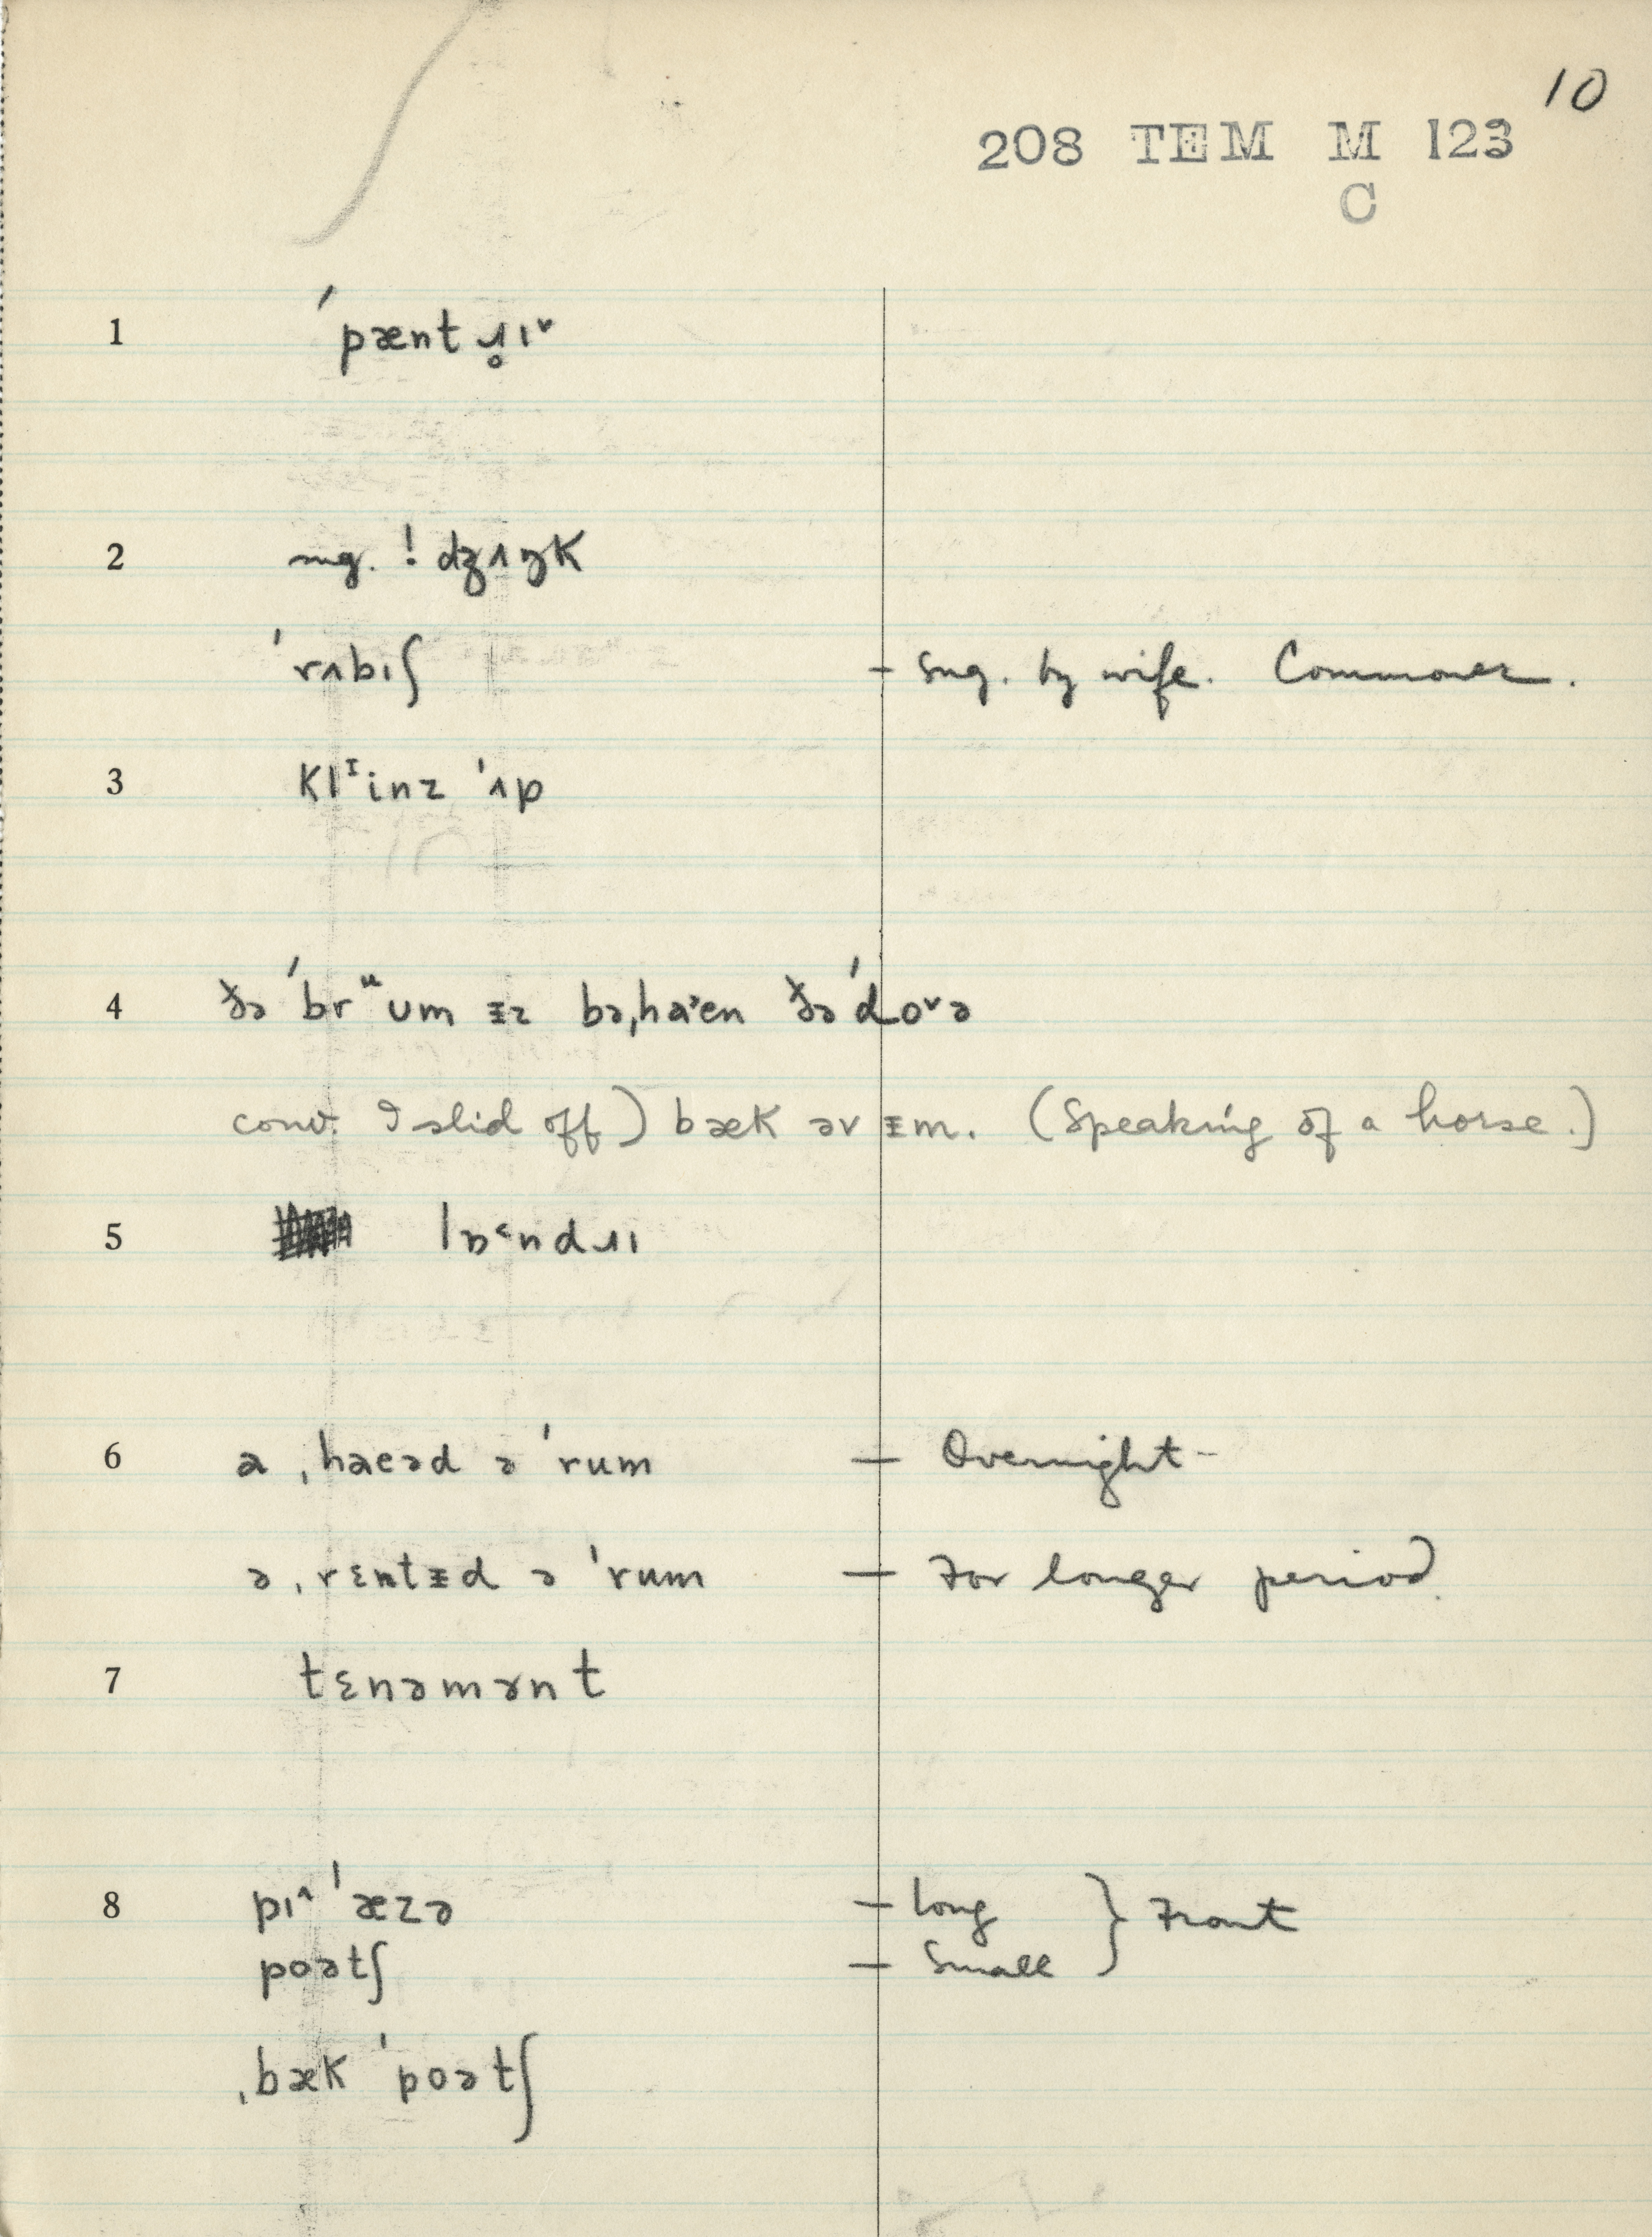 10
208 TEM M 123
C
1 ˈpænt ɹ̥ɪ˅
2 sug. ! dʒʌŋK
ˈrʌbɪʃ – sug. by wife. Commoner.
3 Klᴵinz ˈʌp
4 ðə ˈbrᵘum ɪ̵z bəˌhaˈen ðə ˈdo˅ə
conv. I slid off) bæK əv ɪ̵m. (Speaking of a horse.)
5 lɒ˂ndɹɪ
6 a ˌhaeəd ə ˈrum – Overnight –
ə ˌrɛntɪ̵d ə ˈrum – For longer period.
7 tɛnəmənt
8 pɪ˄ ˈæzə – long } Front
poətʃ – Small
ˌbæK ˈpoətʃ